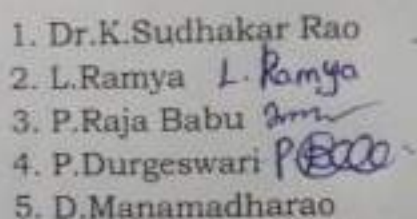 1. Dr.K.Sudhakar Rao
2. L.Ramya L. Ramya
3. P.Raja Babu
4. P.Durgeswari
5. D.Manamadharao